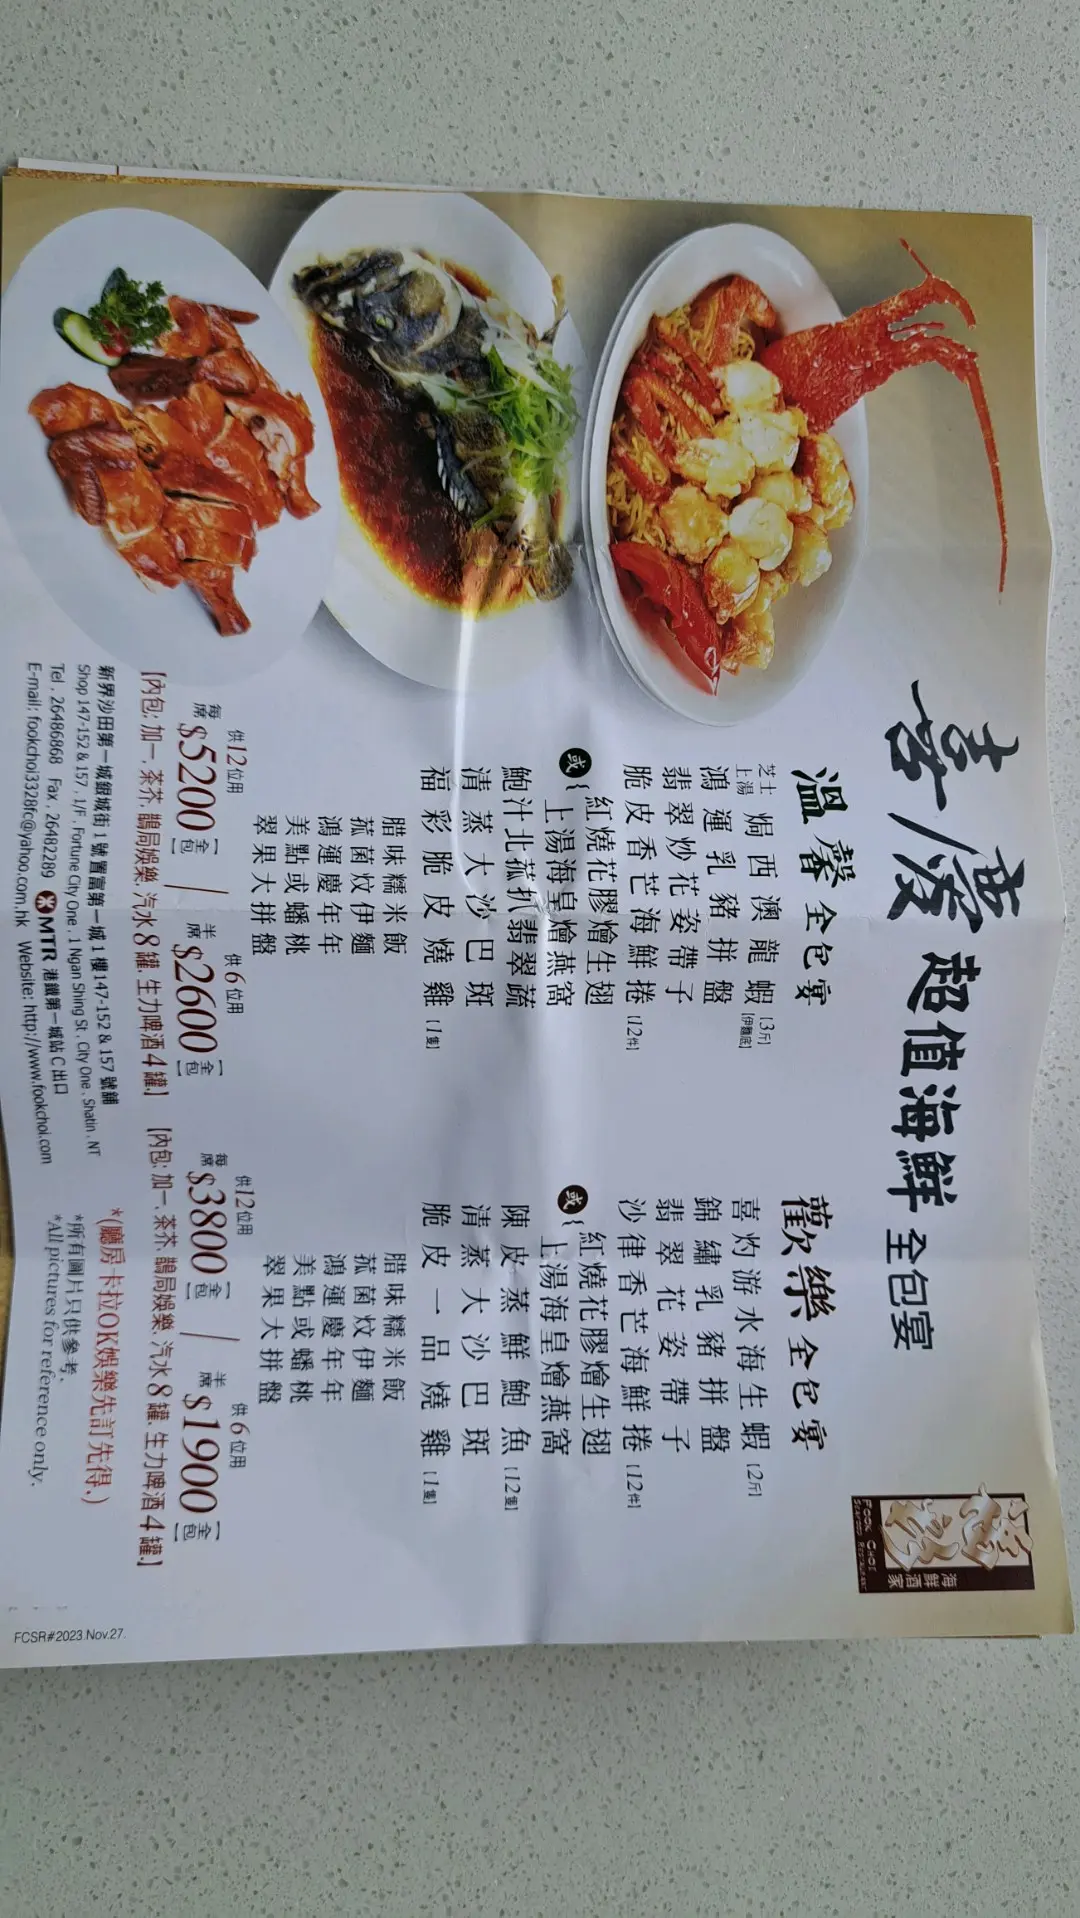 喜慶 超值海鮮 全包宴
海鮮酒家
FOOK CHOI
SEAFOOD RESTAURANT
溫馨 全包宴
芝士
上湯 焗西澳龍蝦 [3斤]
[伊麵底]
鴻運乳豬拼盤
翡翠炒花姿帶子
脆皮香芒海鮮捲 [12件]
或 紅燒花膠燴生翅
上湯海皇燴燕窩
鮑汁北菰扒翡翠蔬
清蒸大沙巴斑
福彩脆皮燒雞 [1隻]
腊味糯米飯
菰菌炆伊麵
鴻運慶年年
美點或蟠桃
翠果大拼盤
供12位用
每席 $5200 [全包]
/
供6位用
半席 $2600 [全包]
[內包: 加一, 茶芥, 鵲局娛樂, 汽水8罐, 生力啤酒4罐.]
歡樂 全包宴
喜灼游水海生蝦 [2斤]
錦繡乳豬拼盤
翡翠花姿帶子
沙律香芒海鮮捲 [12件]
或 紅燒花膠燴生翅
上湯海皇燴燕窩
陳皮蒸鮮鮑魚 [12隻]
清蒸大沙巴斑
脆皮一品燒雞 [1隻]
腊味糯米飯
菰菌炆伊麵
鴻運慶年年
美點或蟠桃
翠果大拼盤
供12位用
每席 $3800 [全包]
/
供6位用
半席 $1900 [全包]
[內包: 加一, 茶芥, 鵲局娛樂, 汽水8罐, 生力啤酒4罐.]
*(廳房卡拉OK娛樂先訂先得.)
*所有圖片只供參考.
*All pictures for reference only.
新界沙田第一城銀城街1號置富第一城1樓147-152 & 157號舖
Shop 147-152 & 157 . 1/F . Fortune City One . 1 Ngan Shing St . City One . Shatin . NT
Tel . 26486868 Fax . 26482289 MTR 港鐵第一城站C出口
E-mail: fookchoi3328fc@yahoo.com.hk Website: http://www.fookchoi.com
FCSR#2023.Nov.27.